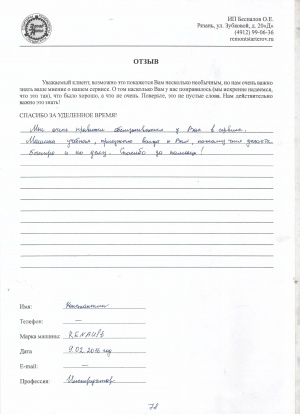 ИП Беспалов О.Е.
Рязань, ул. Зубковой, д. 20«Д»
(4912) 99-06-36
remontstarterov.ru
ОТЗЫВ
Уважаемый клиент, возможно это покажется Вам несколько необычным, но нам очень важно
знать ваше мнение о нашем сервисе. О том насколько Вам у нас понравилось (мы искренне надеемся,
что это так), что было хорошо, а что не очень. Поверьте, это не пустые слова. Нам действительно
важно это знать!
СПАСИБО ЗА УДЕЛЕННОЕ ВРЕМЯ!
Мне очень нравится обслуживаться у Вас в сервисе.
Машина учебная, приезжаю всегда к Вам, потому что делаете
быстро и на совесть. Спасибо за помощь!
Имя: Константин
Телефон: —
Марка машины: RENAULT
Дата 9.02.2016 год
E-mail: —
Профессия: Инструктор
78